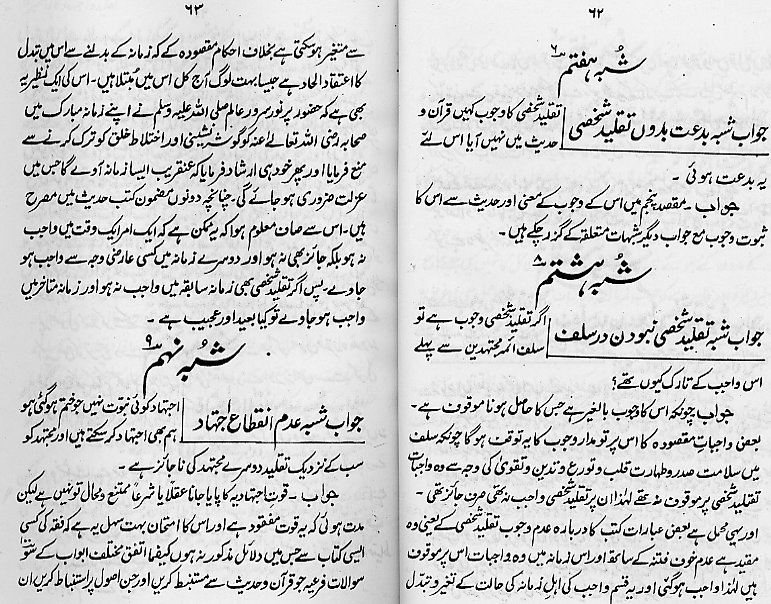 ۶۲
شبہ ہفتم ۷
جواب شبہ بدعت بدوں تقلید شخصی
تقلید شخصی کا وجوب کہیں قرآن و
حدیث میں نہیں آیا اس لئے
یہ بدعت ہوئی ۔
جواب ۔ مقصد پنجم میں اس کے وجوب کے معنی اور حدیث سے اس کا
ثبوت وجوب مع جواب دیگر شبہات متعلقہ کے گزر چکے ہیں ۔
شبہ ہشتم ۸
جواب شبہ تقلید شخصی نبودن در سلف
اگر تقلید شخصی وجوب ہے تو
سلف ائمہ مجتہدین سے پہلے
اس واجب کے تارک کیوں تھے؟
جواب چونکہ اس کا وجوب بالغیر ہے جس کا حاصل ہونا موقوف ہے ۔
بعض واجبات مقصودہ کا اس پر تو مدار وجوب کا یہ توقف ہوگا چونکہ سلف
میں سلامت صدر و طہارت قلب و تورع و تدین و تقویٰ کی وجہ سے وہ واجبات
تقلید شخصی پر موقوف نہ تھے لہٰذا ان پر تقلید شخصی واجب نہ تھی صرف جائز تھی ۔
اور یہی محمل ہے بعض عبارات کتب کا دربارہ عدم وجوب تقلید شخصی کے یعنی وہ
مقید ہے عدم خوف فتنہ کے ساتھ اور اس زمانہ میں وہ واجبات اس پر موقوف
ہیں لہٰذا واجب ہو گئی اور یہ قسم واجب کی اہل زمانہ کی حالت کے تغیر و تبدل
۶۳
سے متغیر ہو سکتی ہے بخلاف احکام مقصودہ کے کہ زمانہ کے بدلنے سے اس میں تبدل
کا اعتقاد الحاد ہے جیسا بہت لوگ آج کل اس میں مبتلا ہیں ۔ اس کی ایک نظیر یہ
بھی ہے کہ حضور پر نور سرور عالم صلی اللہ علیہ وسلم نے اپنے زمانہ مبارک میں
صحابہ رضی اللہ تعالےٰ عنہ کو گوشہ نشینی اور اختلاط خلق کو ترک کرنے سے
منع فرمایا اور پھر خود ہی ارشاد فرمایا کہ عنقریب ایسا زمانہ آوے گا جس میں
عزلت ضروری ہو جائے گی ۔ چنانچہ دونوں مضمون کتب حدیث میں مصرح
ہیں ۔ اس سے صاف معلوم ہوا کہ یہ ممکن ہے کہ ایک امر ایک وقت میں واجب
نہ ہو بلکہ جائز بھی نہ ہو اور دوسرے زمانہ میں کسی عارضی وجہ سے واجب ہو
جاوے ۔ پس اگر تقلید شخصی بھی زمانہ سابقہ میں واجب نہ ہو اور زمانہ متاخر میں
واجب ہو جاوے تو کیا بعید اور عجیب ہے ۔
شبہ نہم ۹
جواب شبہ عدم انقطاع اجتہاد
اجتہاد کوئی نبوت نہیں جو ختم ہو گئی ہو
ہم بھی اجتہاد کر سکتے ہیں اور مجتہد کو
سب کے نزدیک تقلید دوسرے مجتہد کی ناجائز ہے ۔
جواب ۔ قوت اجتہادیہ کا پایا جانا عقلاً یا شرعاً ممتنع و محال تو نہیں ہے لیکن
مدت ہوئی کہ یہ قوت مفقود ہے اور اس کا امتحان بہت سہل یہ ہے کہ فقہ کی کسی
ایسی کتاب سے جس میں دلائل مذکور نہ ہوں کیفما اتفق مختلف ابواب کے سو
سوالات فرعیہ جو قرآن و حدیث سے مستنبط کریں اور جن اصول پر استنباط کریں ان